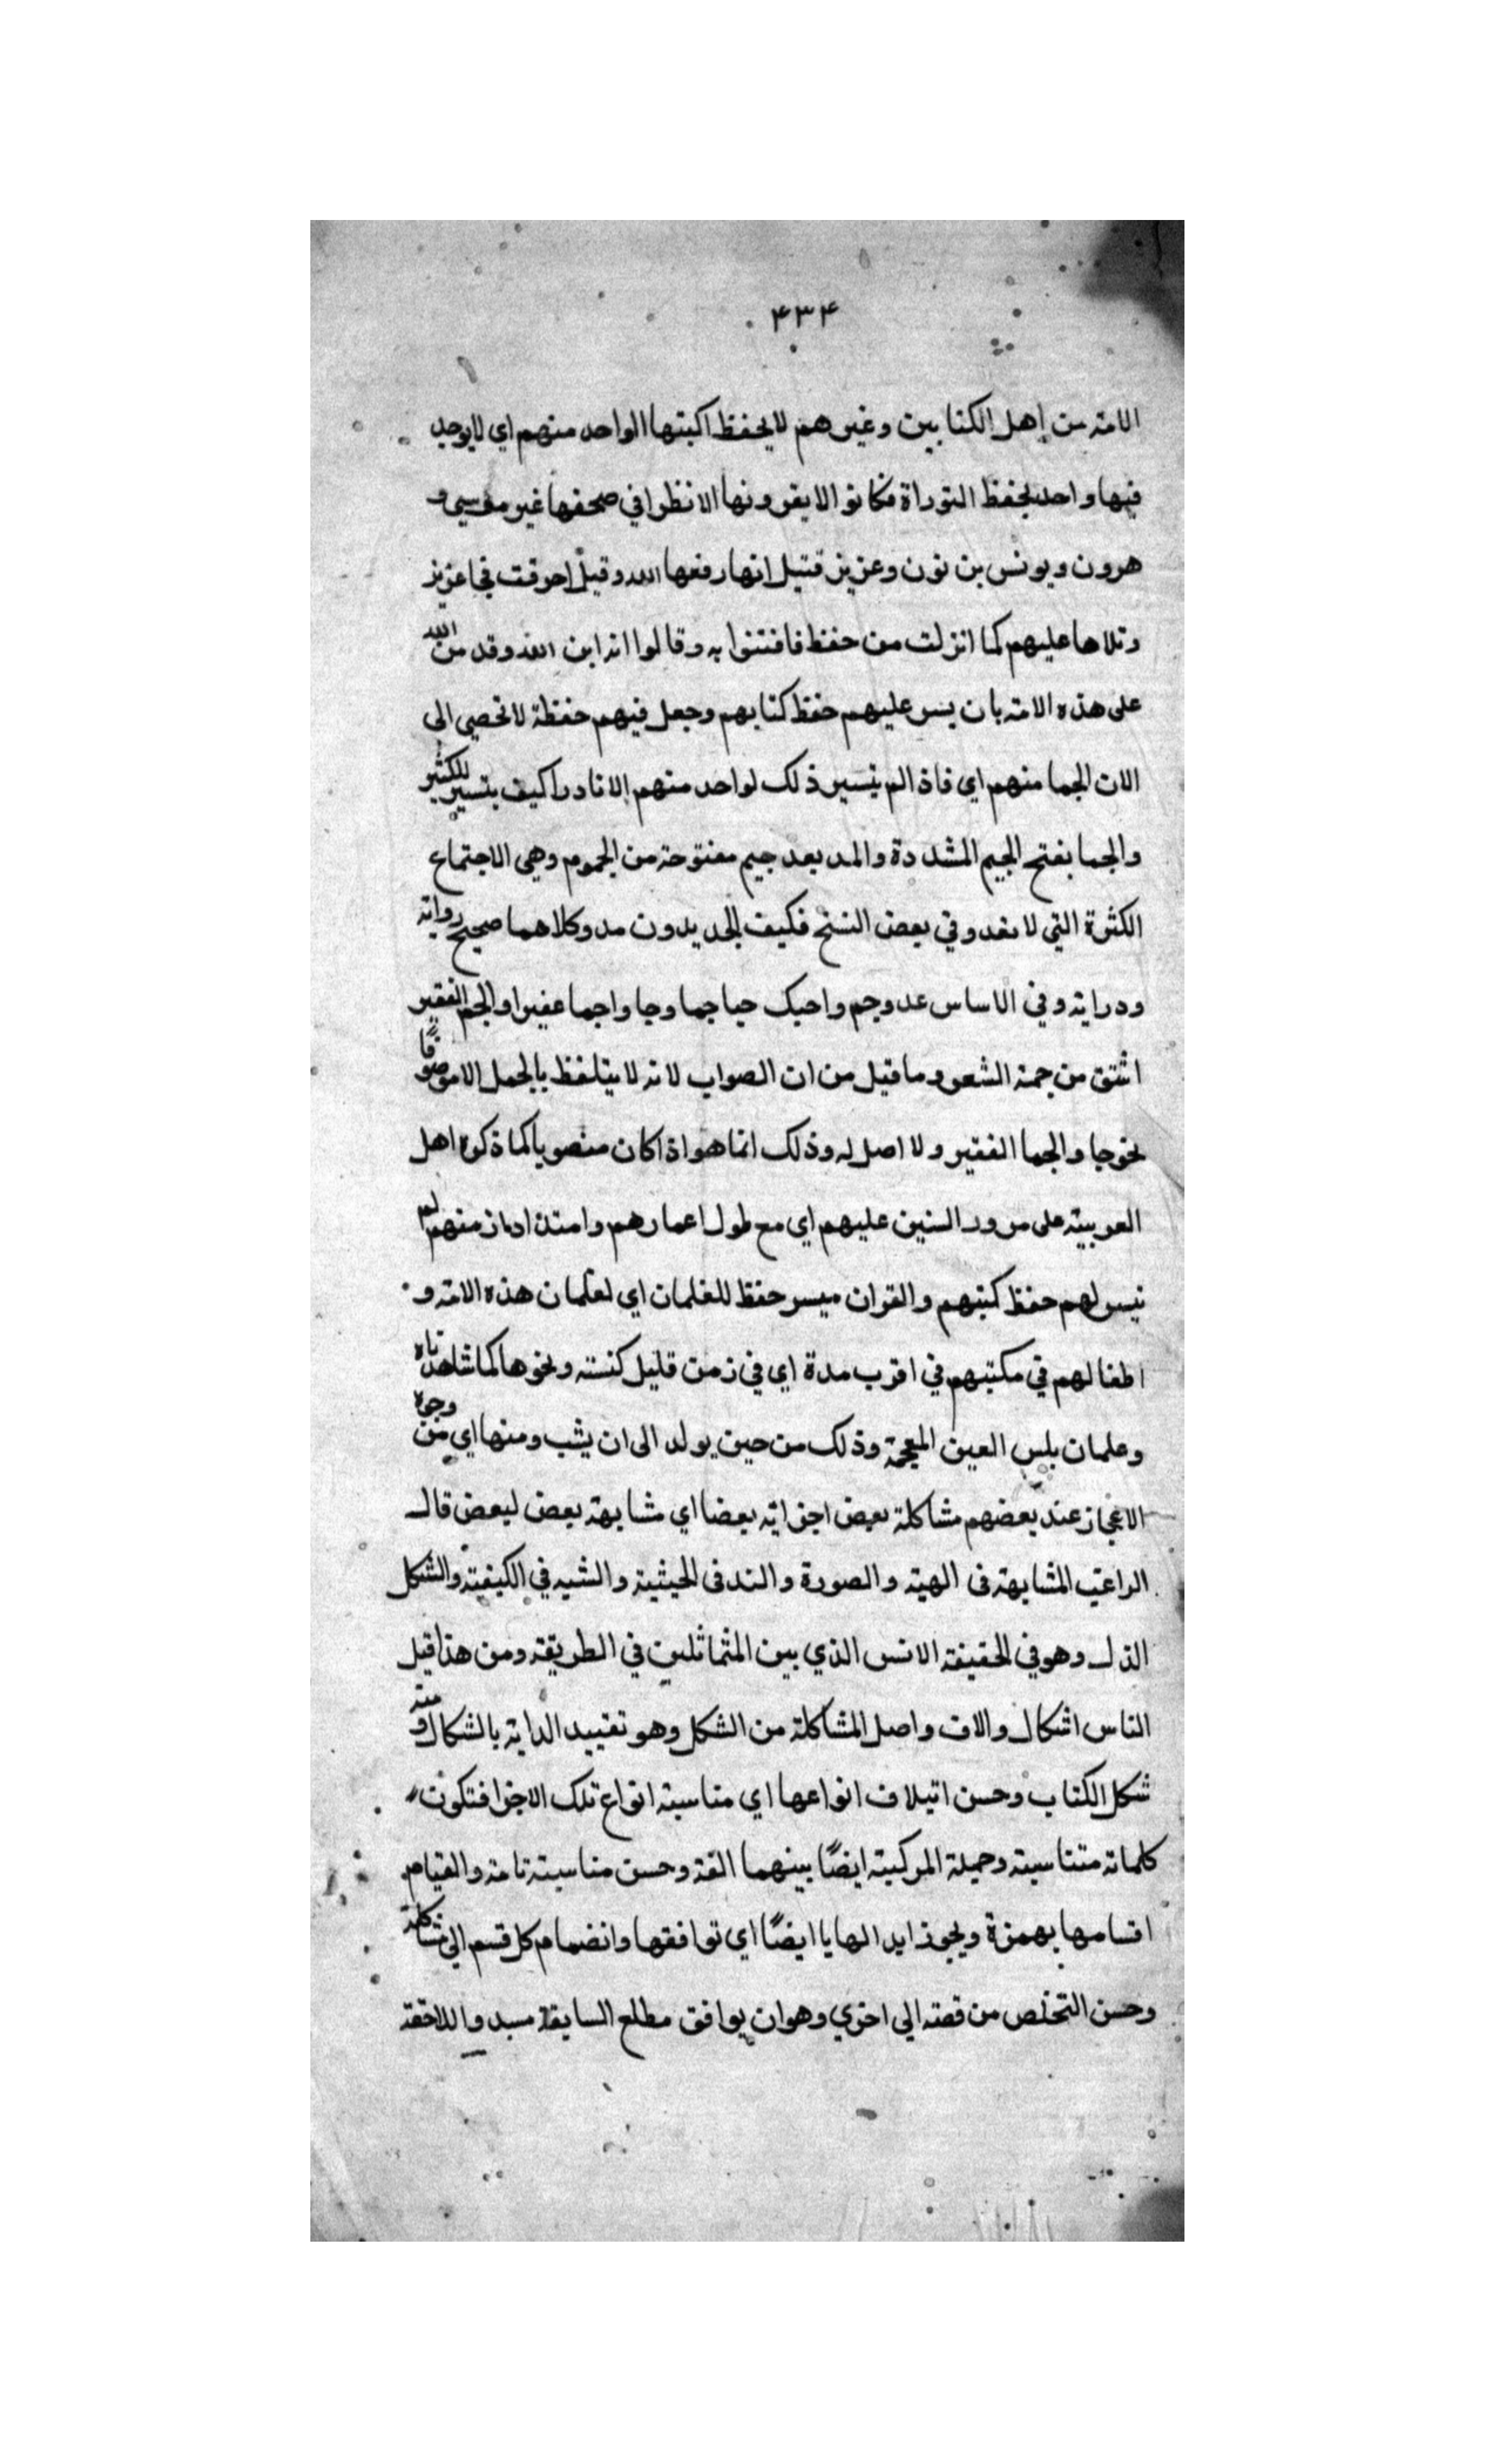 ۴۳۴
الامة من اهل الكتابين وغيرهم لا يحفظ اكبتها الواحد منهم اي لا يوجد
فيها واحد يحفظ التوراة فكانوا لا يقرونها الا نظرا في صحفها غير موسي و
هرون ويونس بن نون وعزيز قتيل انها رفعها الله وقيل احرقت فجا عزيز
وتلاها عليهم كما انزلت من حفظ فافتنوا به وقالوا انه ابن الله وقد من الله
على هذه الامة بان يسر عليهم حفظ كتابهم وجعل فيهم حفظة لا تحصي الى
الان الجما منهم اي فاذا لم يتسير ذلك لواحد منهم الا نادرا كيف يتسير للكثير
والجما بفتح الجيم المشددة والمد بعد جيم مفتوحة من الجموم وهي الاجتماع
الكثرة التي لا تعد وفي بعض النسخ فكيف الجد بدون مد وكلاهما صحيح رواية
ودراية وفي الاساس عدوجم واحبك حبا جما وجا واجما عفيرا والجم الفقير
اشتق من جمة الشعر وما قيل من ان الصواب لانه لا يتلفظ بالجمل الا موصوفًا
نحو جا والجما الفقير ولا اصل له وذلك انما هو اذا كان منصوبا كما ذكره اهل
العربية على مرور السنين عليهم اي مع طول اعمارهم وامتداد منهم لم
تيسر لهم حفظ كتبهم والقران ميسر حفظ للغلمان اي لغلمان هذه الامة و
اطفالهم في مكتبهم في اقرب مدة اي في زمن قليل كسنة ونحوها كما شاهدناه
وعلمان بلس العين المعجمة وذلك من حين يولد الى ان يشب ومنها اي من وجوه
الاعجاز عند بعضهم مشاكلة بعض اجزاية بعضا اي مشابهة بعض لبعض قال
الراعب المشابهة فى الهية والصورة والند فى الحيثية والشبه في الكيفية والشكل
الذل وهو في الحقيقة الانس الذي بين المتماثلين في الطريقة ومن هذا قيل
الناس اشكال والاف واصل المشاكلة من الشكل وهو تقييد الداية بالشكال ومنه
شكل الكتاب وحسن ايتلاف انواعها اي مناسبة انواع تلك الاجزا فتكون
كلماته متناسبة وجميلة المركبة ايضًا بينهما الفة وحسن مناسبة تامة والتيام
اقسامها بهمزة ويجوز ابدالها يا ايضًا اي توافقها وانضمام كل قسم الى مشاكلة
وحسن التخلص من قصة الى اخري وهو ان يوافق مطلع السابقة مبدو اللاحقة